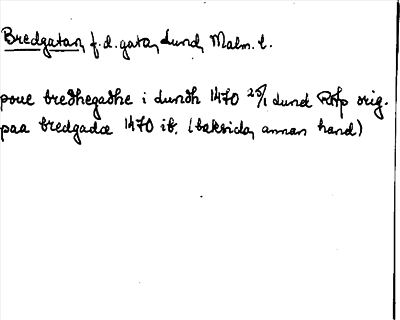 Bredgatan, f. d. gata, Lund, Malm. l.
poue bredhegadhe i lundh 1470 25/1 Lund RAp orig.
paa bredgadæ 1470 ib. (baksida, annan hand)